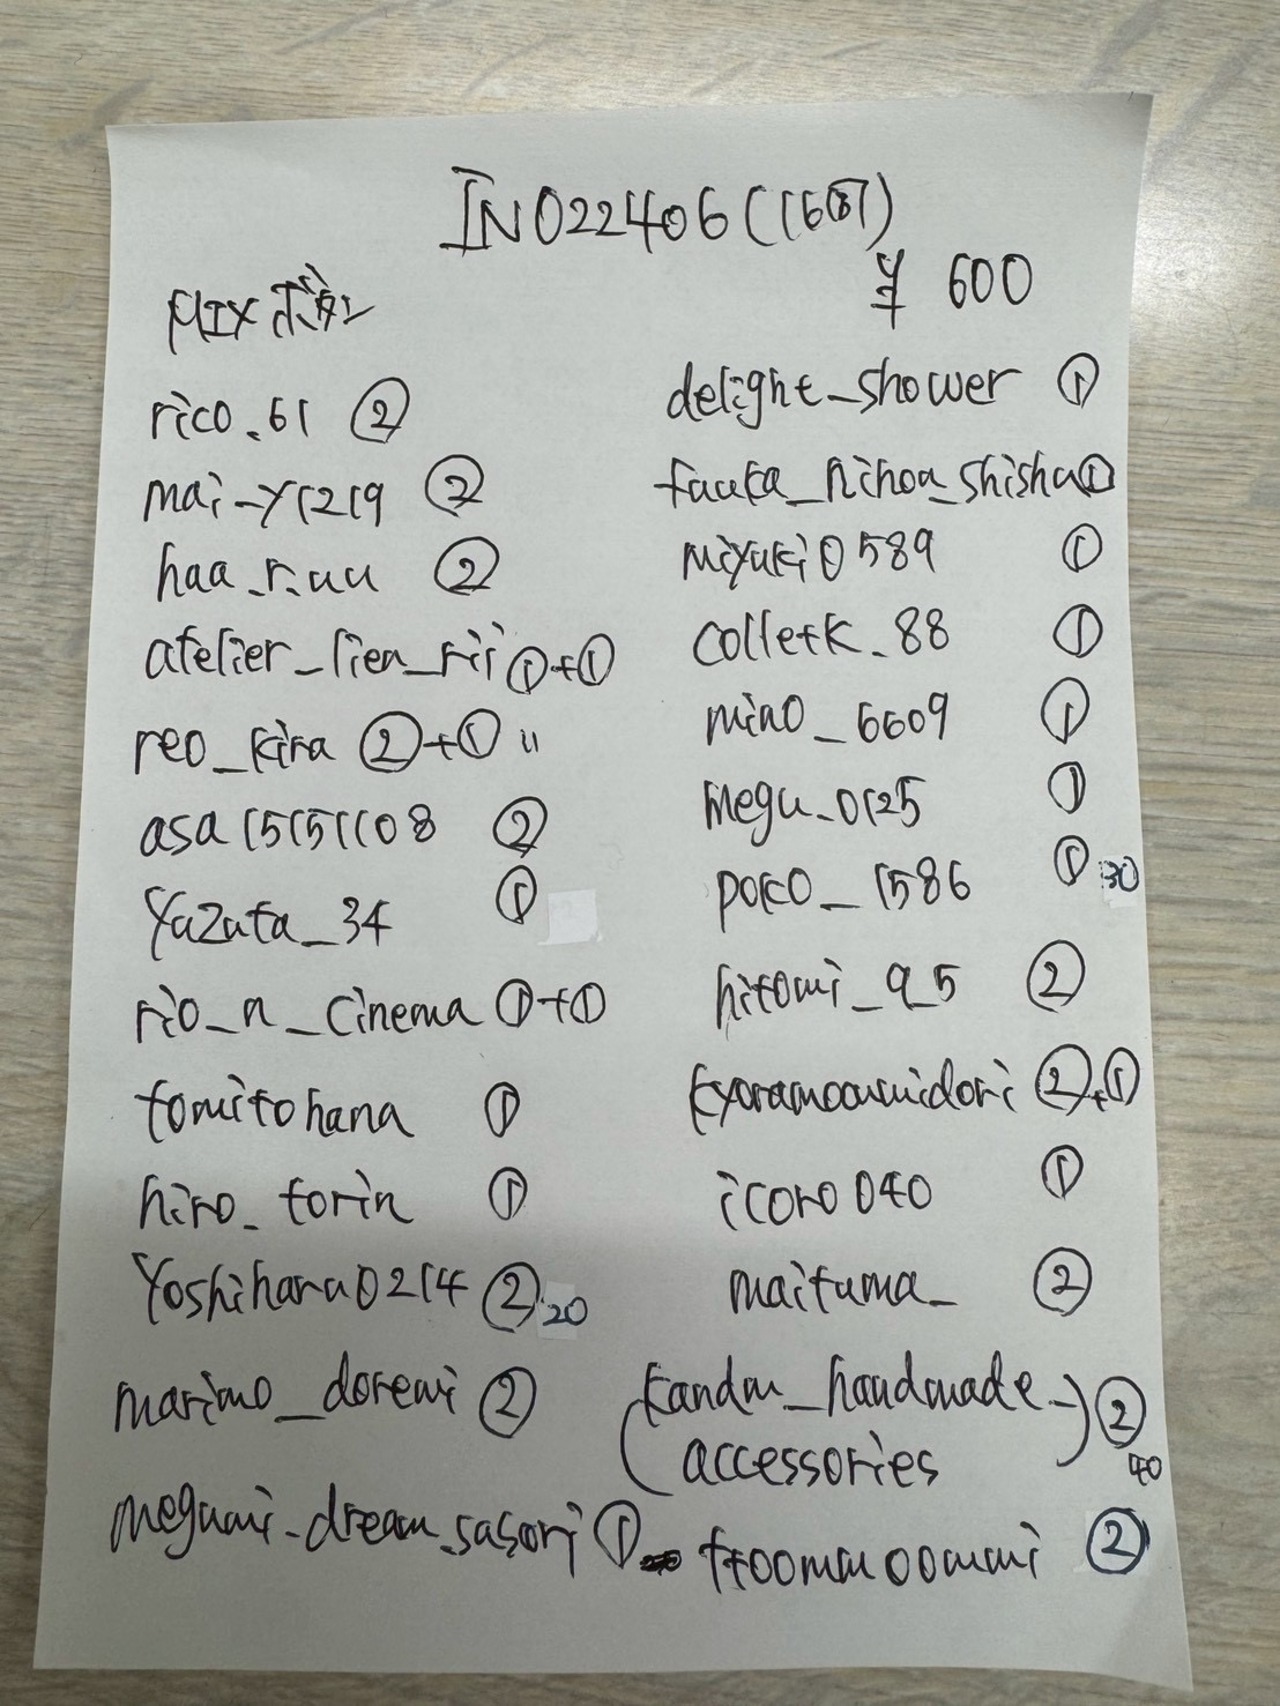 IN022406(168)
¥ 600
MIX
rico_61 ②
mai-y1219 ②
haa_r.uu ②
atelier_lien_rii ①+①
reo_kira ②+① 〃
asa15151108 ②
yuzuta_34 ①
rio_n_cinema ①+①
tomitohana ①
hiro_torin ①
Yoshiharu0214 ② 20
marimo_doremi ②
megumi_dream_sasori ①
delight_shower ①
fuuka_nihon_shishu①
miyuki0589 ①
colletk_88 ①
mino_6609 ①
megu_0125 ①
poko_1586 ① 30
hitomi_9_5 ②
kyoramoonmidori ②+①
icoro040 ①
maituma_ ②
(kandm_handmade_
accessories) ②
40
ttoommoommi ②